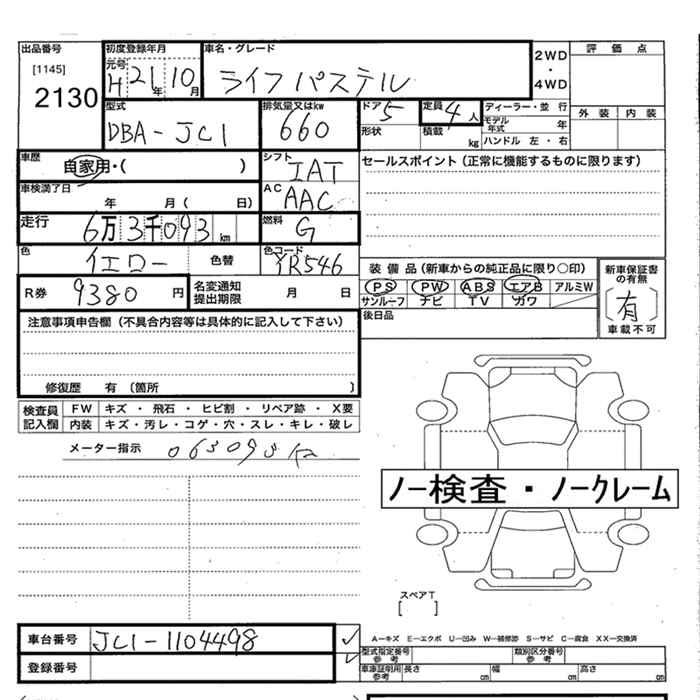 出品番号 初度登録年月 車名・グレード
[1145] 元号 H 21 年 10 月 ライフ パステル 2WD ・ 4WD 評価点
2130
型式 排気量又はkw ドア 5 定員 4 人 ディーラー・並行 外装 内装
DBA-JC1 660 形状 積載 kg モデル年式 年
ハンドル 左・右
車歴 シフト セールスポイント（正常に機能するものに限ります）
自家用・( ) IAT
車検満了日 AC
年 月 ( 日) AAC
走行 燃料
6万3千093km G
色 色替 色コード 装備品（新車からの純正品に限り○印） 新車保証書の有無
イエロー YR546
R券 9380 円 名変通知提出期限 月 日 PS PW ABS エアB アルミW [有]
サンルーフ ナビ TV カワ 車載不可
注意事項申告欄（不具合内容等は具体的に記入して下さい） 後日品
修復歴 有 （箇所 )
検査員記入欄 FW キズ ・ 飛石 ・ ヒビ割 ・ リペア跡 ・ X要
内装 キズ・汚レ・コゲ・穴・スレ・キレ・破レ
メーター指示
ノー検査・ノークレーム
スペアT
[ ]
車台番号 JC1-1104498
A－キズ E－エクボ U－凹み W－補修跡 S－サビ C－腐食 XX－交換済
登録番号 型式指定番号 参考 類別区分番号 参考
車庫証明用 参考 長さ cm 幅 cm 高さ cm